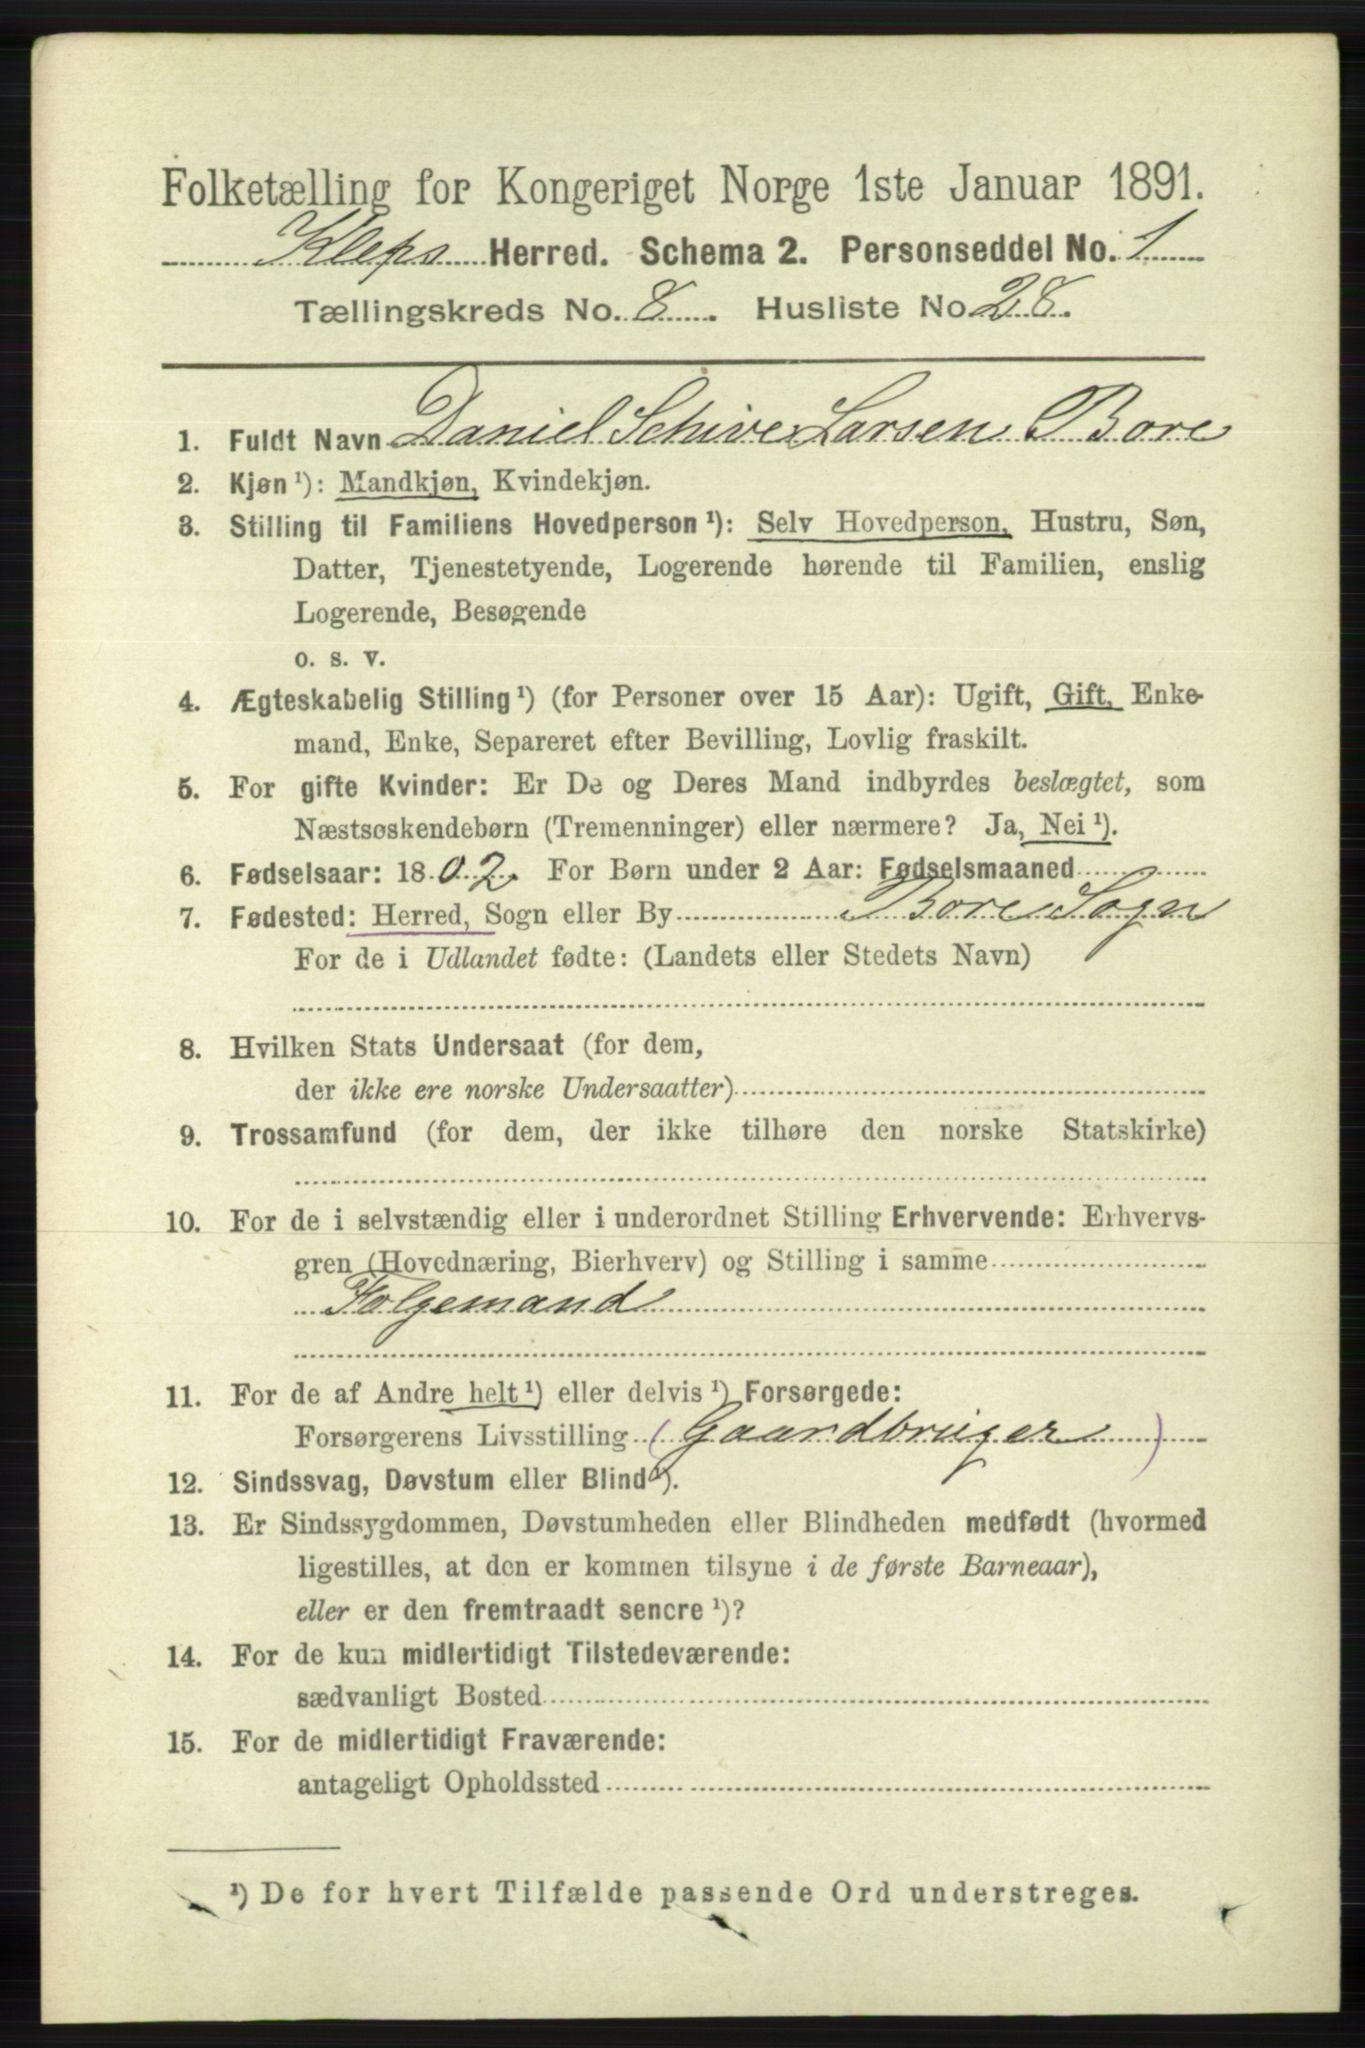 Folketælling for Kongeriget Norge 1ste Januar 1891.
Kleps Herred. Schema 2. Personseddel No. 1
Tællingskreds No. 8. Husliste No 28.
1. Fuldt Navn Daniel Schive Larsen Bore
2. Kjøn ¹): Mandkjøn, Kvindekjøn.
3. Stilling til Familiens Hovedperson ¹): Selv Hovedperson, Hustru, Søn,
Datter, Tjenestetyende, Logerende hørende til Familien, enslig
Logerende, Besøgende
o. s. v.
4. Ægteskabelig Stilling ¹) (for Personer over 15 Aar): Ugift, Gift, Enke-
mand, Enke, Separeret efter Bevilling, Lovlig fraskilt.
5. For gifte Kvinder: Er De og Deres Mand indbyrdes beslægtet, som
Næstsøskendebørn (Tremenninger) eller nærmere? Ja, Nei ¹).
6. Fødselsaar: 1802. For Børn under 2 Aar: Fødselsmaaned
7. Fødested: Herred, Sogn eller By Bore Sogn
For de i Udlandet fødte: (Landets eller Stedets Navn)
8. Hvilken Stats Undersaat (for dem,
der ikke ere norske Undersaatter)
9. Trossamfund (for dem, der ikke tilhøre den norske Statskirke)
10. For de i selvstændig eller i underordnet Stilling Erhvervende: Erhvervs-
gren (Hovednæring, Bierhverv) og Stilling i samme
Folgemand
11. For de af Andre helt ¹) eller delvis ¹) Forsørgede:
Forsørgerens Livsstilling (Gaardbruger)
12. Sindssvag, Døvstum eller Blind ¹).
13. Er Sindssygdommen, Døvstumheden eller Blindheden medfødt (hvormed
ligestilles, at den er kommen tilsyne i de første Barneaar),
eller er den fremtraadt senere ¹)?
14. For de kun midlertidigt Tilstedeværende:
sædvanligt Bosted
15. For de midlertidigt Fraværende:
antageligt Opholdssted
¹) De for hvert Tilfælde passende Ord understreges.